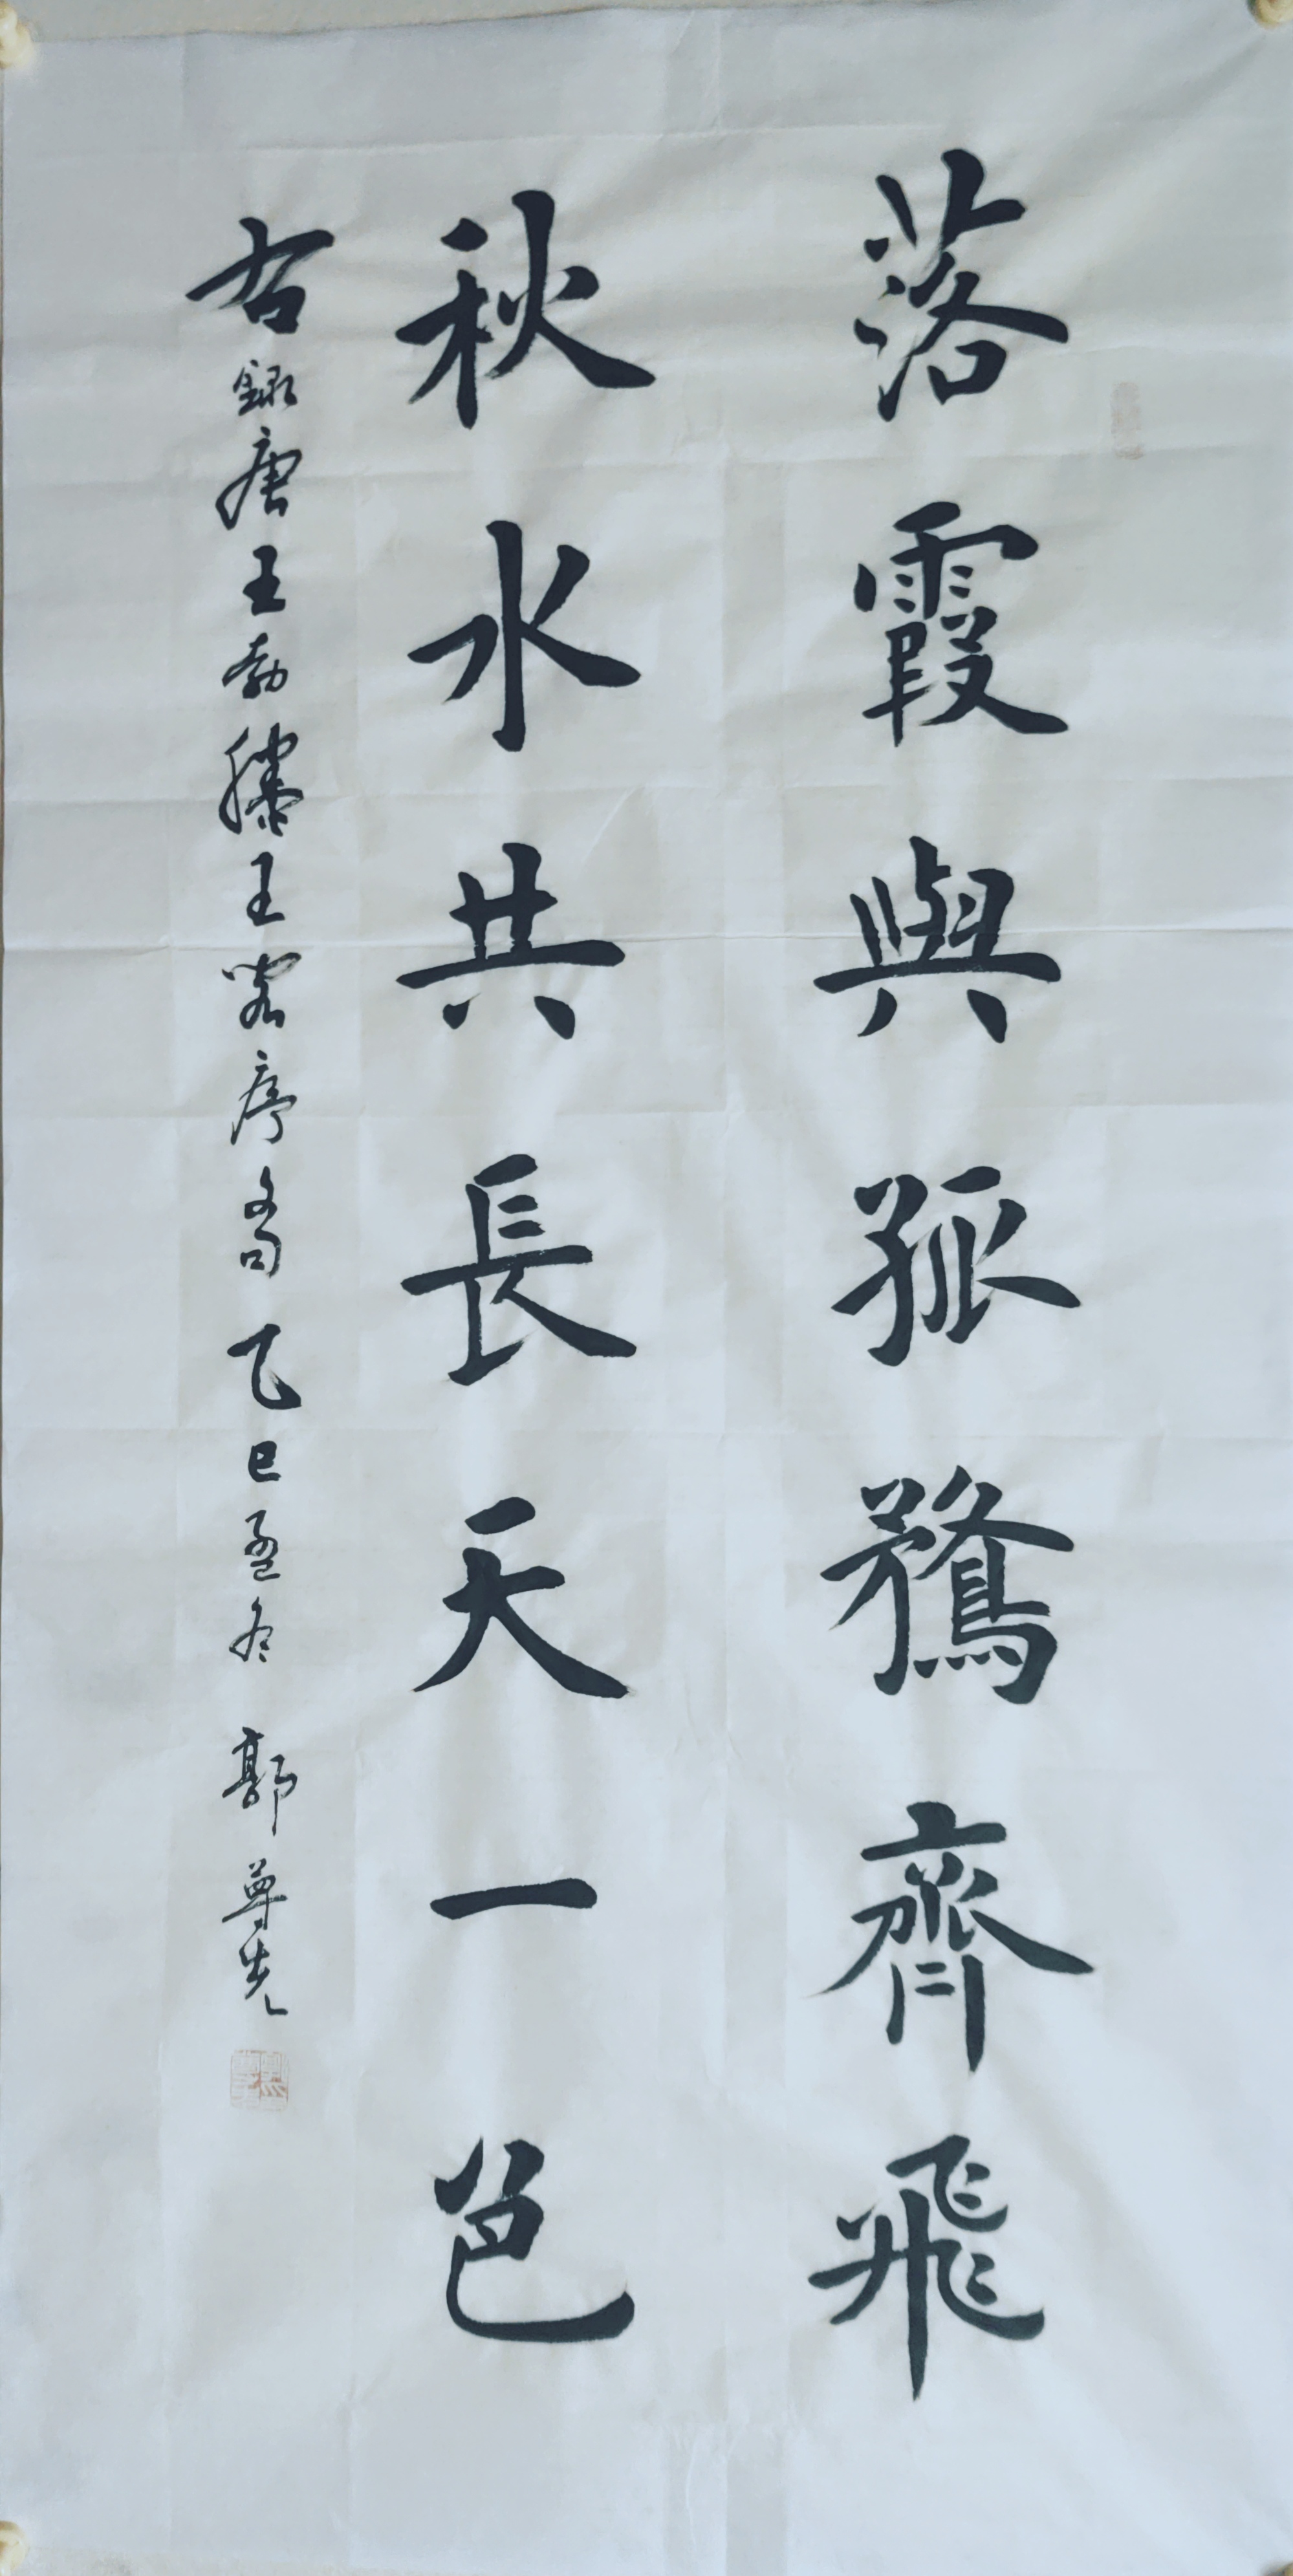 落霞與孤鶩齊飛
秋水共長天一色
右錄唐王勃滕王閣序句乙巳孟冬郭尊先